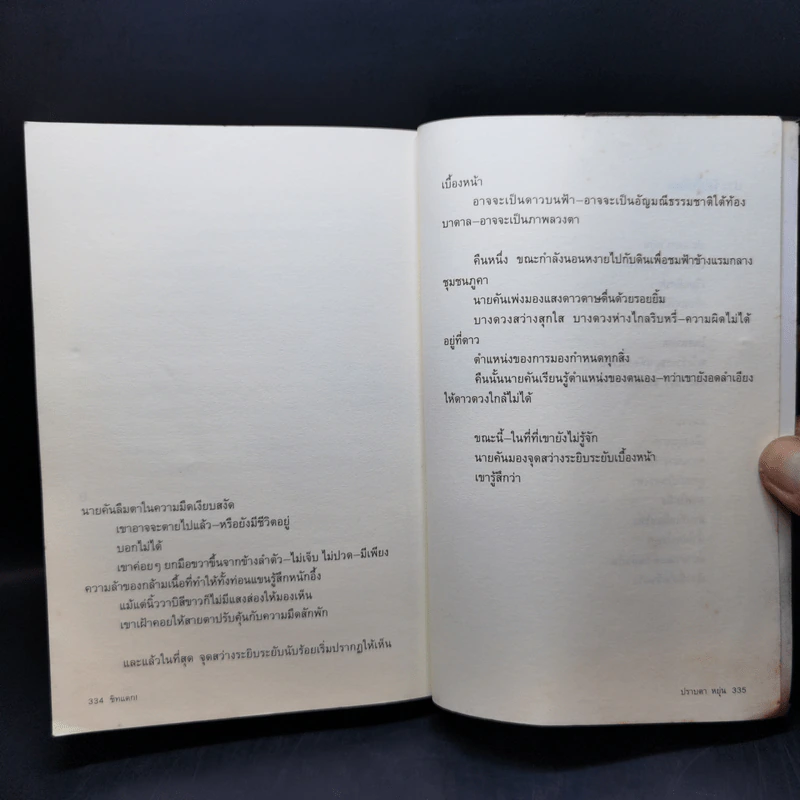 นายคันลืมตาในความมืดเงียบสงัด
เขาอาจจะตายไปแล้ว—หรือยังมีชีวิตอยู่
บอกไม่ได้
เขาค่อยๆ ยกมือขวาขึ้นจากข้างลำตัว—ไม่เจ็บ ไม่ปวด—มีเพียง
ความล้าของกล้ามเนื้อที่ทำให้ทั้งท่อนแขนรู้สึกหนักอึ้ง
แม้แต่นิ้ววาบิลีขาวก็ไม่มีแสงส่องให้มองเห็น
เขาเฝ้าคอยให้สายตาปรับคุ้นกับความมืดสักพัก
และแล้วในที่สุด จุดสว่างระยิบระยับนับร้อยเริ่มปรากฏให้เห็น
334 ชิทแตก!
เบื้องหน้า
อาจจะเป็นดาวบนฟ้า—อาจจะเป็นอัญมณีธรรมชาติใต้ท้อง
บาดาล—อาจจะเป็นภาพลวงตา
คืนหนึ่ง ขณะกำลังนอนหงายไปกับดินเพื่อชมฟ้าข้างแรมกลาง
ชุมชนภูคา
นายคันเพ่งมองแสงดาวดาษดื่นด้วยรอยยิ้ม
บางดวงสว่างสุกใส บางดวงห่างไกลริบหรี่—ความผิดไม่ได้
อยู่ที่ดาว
ตำแหน่งของการมองกำหนดทุกสิ่ง
คืนนั้นนายคันเรียนรู้ตำแหน่งของตนเอง—ทว่าเขายังอดลำเอียง
ให้ดาวดวงใกล้ไม่ได้
ขณะนี้—ในที่ที่เขายังไม่รู้จัก
นายคันมองจุดสว่างระยิบระยับเบื้องหน้า
เขารู้สึกว่า
ปราบดา หยุ่น 335